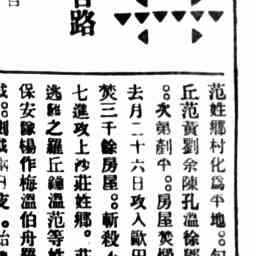 路
范姓鄉村化爲平地。
丘范黃劉余陳孔溫徐
。次第剷平。。房屋焚
去月二十六日攻入歐田
焚三千餘房屋。。斬殺
七進攻上沙莊姓鄉。莊
之羅丘鐘溫范等姓
保安隊楊作梅溫伯舟羅